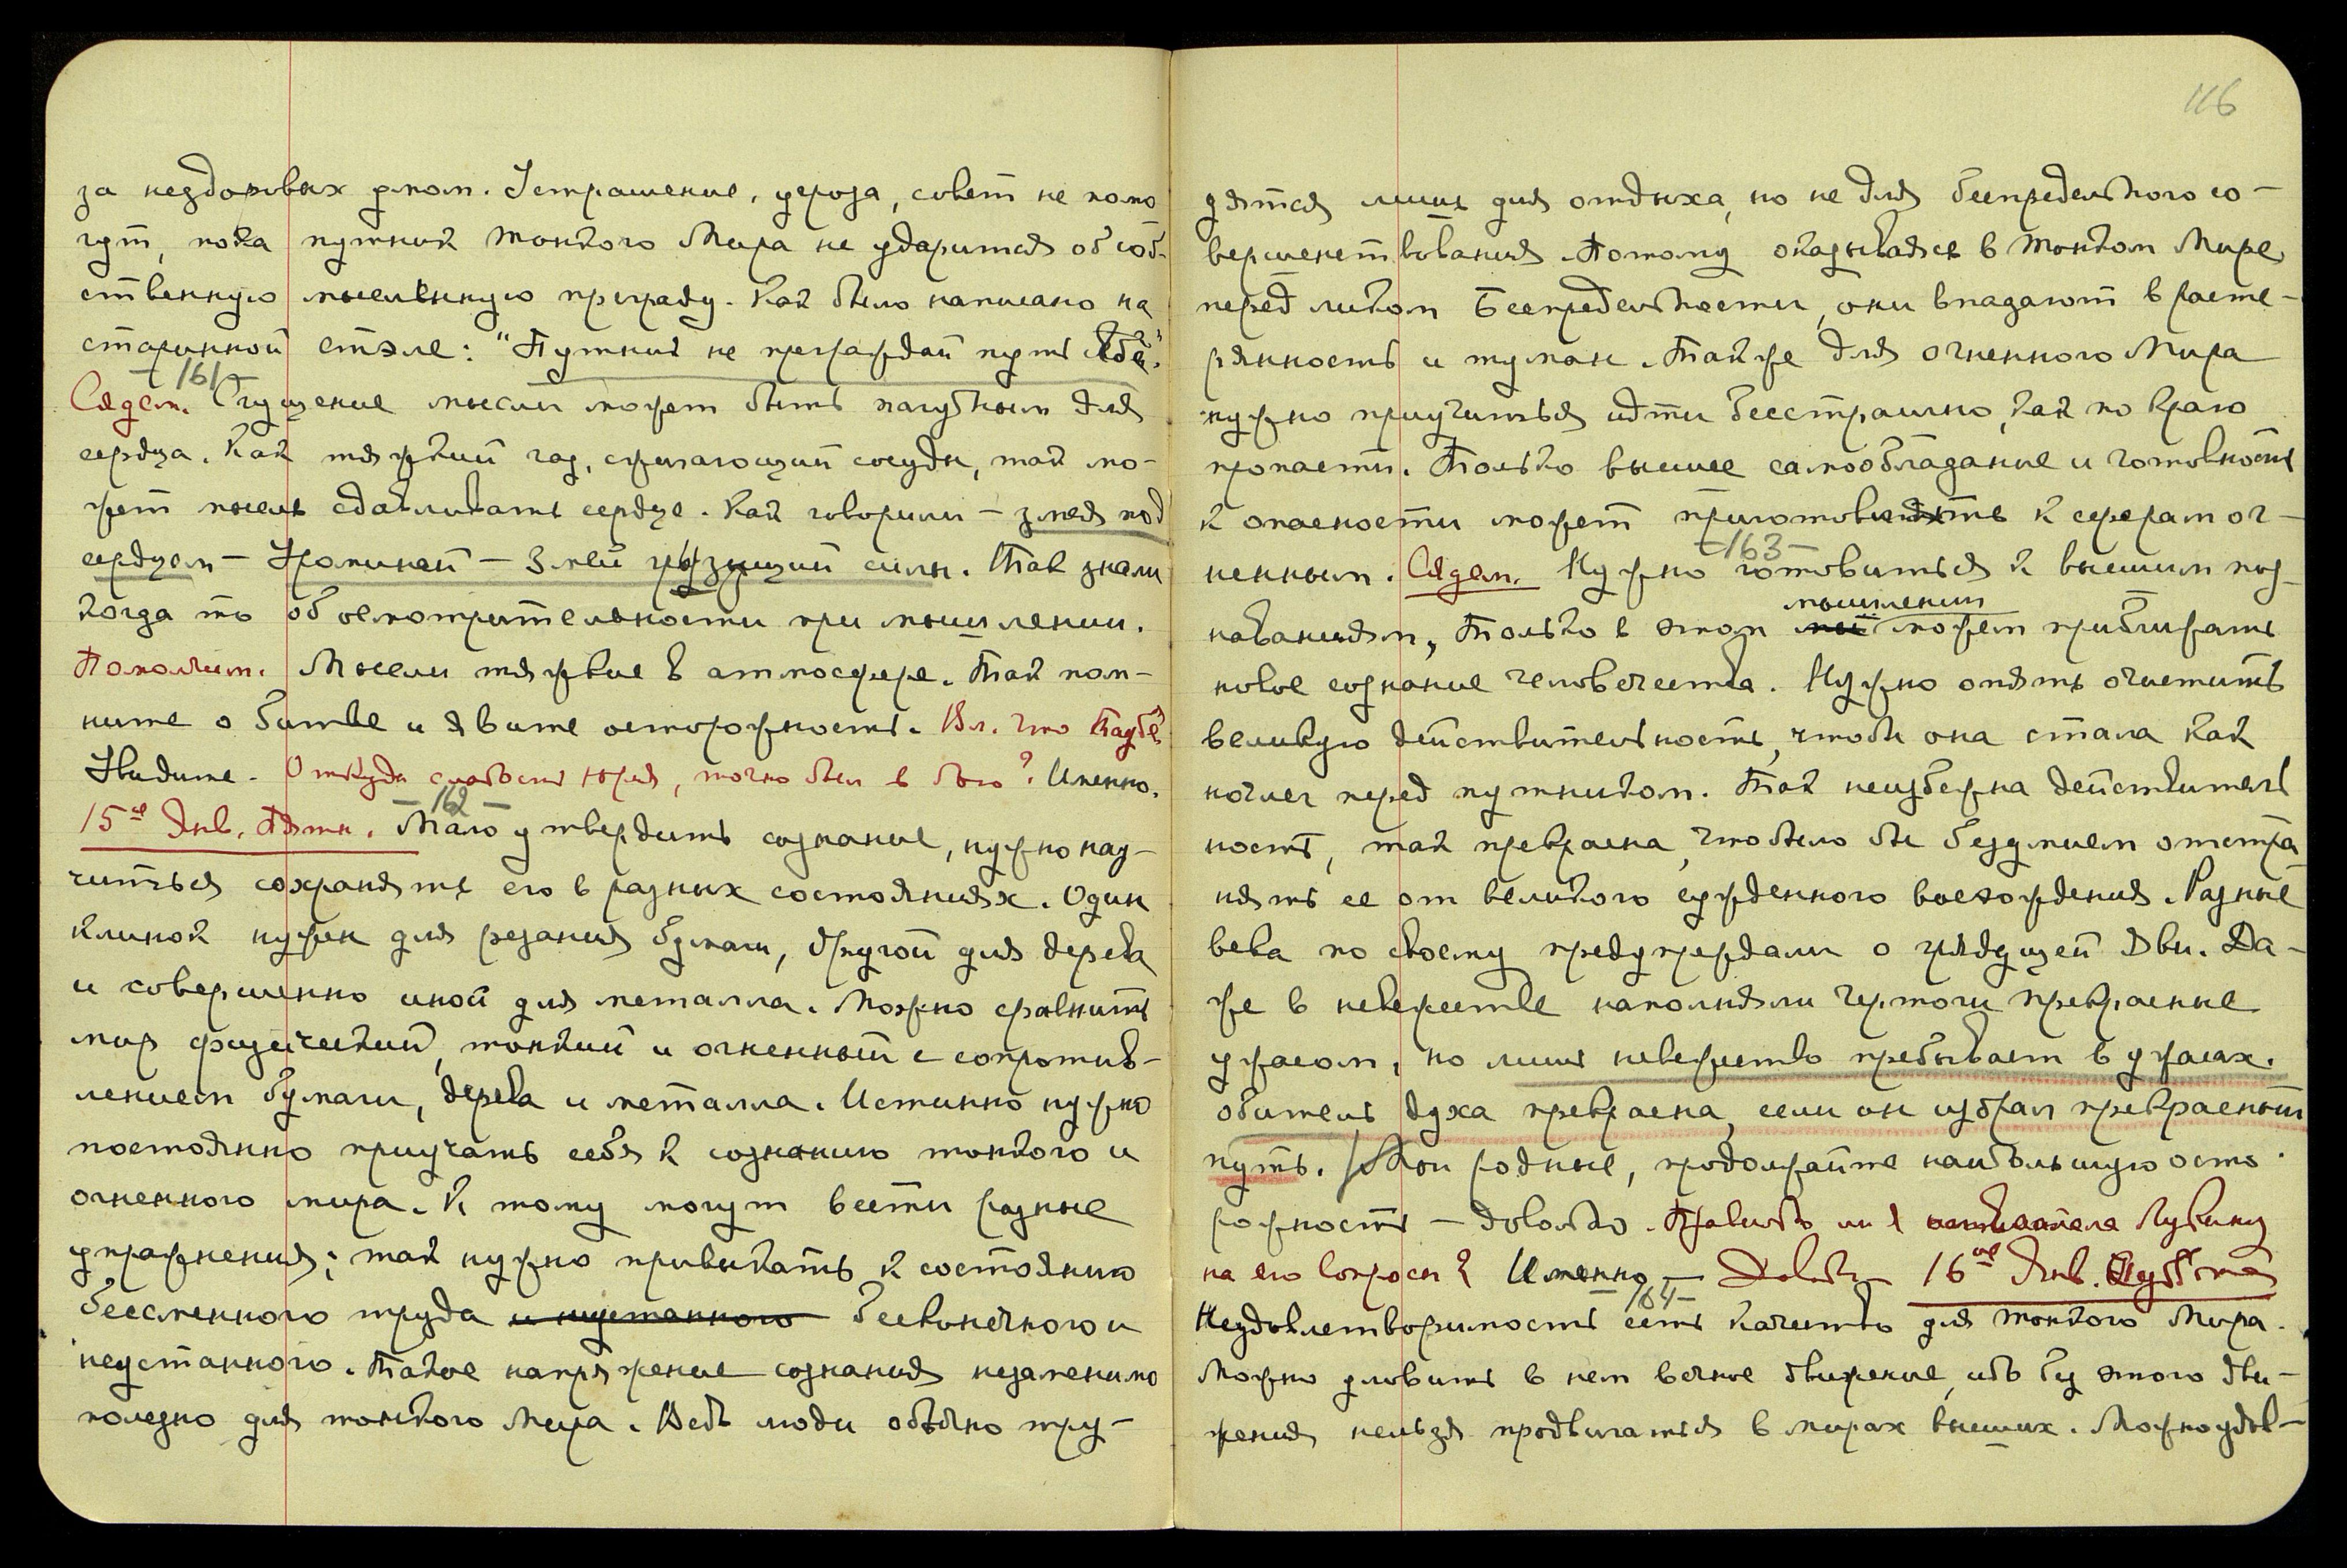 за нездоровых умом. Устрашение, угроза, совет не помо
гут, пока путник тонкого Мира не ударится об соб-
ственную мысленную преграду. Как было написано на
старинной стэле: "Путник не преграждай путь себе".
-161-
Сядем. Сгущение мысли может быть пагубным для
сердца. Как тяжкий газ, сжигающий сосуды, так мо-
жет мысль сдавливать сердце. Как говорили - змея под
сердцем - - Змей грызущий силы. Так знали
когда то об осмотрительности при мышлении.
Помолчим. Мысли тяжкие в атмосфере. Так пом-
ните о битве и явите осторожность. Вл. что
Увидите. Откуда слабость Юрия, точно был в бою? Именно.
-162-
15ое Янв. Пятн. Мало утвердить сознание, нужно нау-
читься сохранять его в разных состояниях. Один
клинок нужен для резания бумаги, другой для дерева
и совершенно иной для металла. Можно сравнить
мир физический, тонкий и огненный с сопротив-
лением бумаги, дерева и металла. Истинно нужно
постоянно приучать себя к сознанию тонкого и
огненного мира. К тому могут вести разные
упражнения; так нужно привыкать к состоянию
бессменного труда и неустанного бесконечного и
неустанного. Такое напряжение сознания незаменимо
полезно для тонкого Мира. Ведь люди обычно тру-
116
дятся лишь для отдыха, но не для беспредельного со-
вершенствования. Потому оказываясь в тонком Мире,
перед ликом Беспредельности, они впадают в расте-
рянность и туман. Также для огненного Мира
нужно приучиться идти бесстрашно, как по краю
пропасти. Только высшее самообладание и готовность
к опасности может приготовить к сферам ог-
-163-
ненным. Сядем. Нужно готовиться к высшим поз-
мышлении
наваниям, только в этом мы может приближать
новое сознание человечества. Нужно опять очистить
великую действительность, чтобы она стала как
ночлег перед путником. Так неизбежна действитель
ность, так прекрасна, что было бы безумием отстра
нять ее от великого сужденного восхождения. Разные
века по своему предупреждали о грядущей Яви. Да-
же в невежестве наполняли чертоги прекрасные
ужасом, но лишь невежество пребывает в ужасах.
обитель духа прекрасна, если он избрал прекрасный
путь. Мои родные, продолжайте наибольшую осто
рожность - довольно. Правильно ли я Лукину
на его вопросы? Именно - Довольно 16ое Янв. Суббота
-164-
Неудовлетворимость есть качество для тонкого Мира.
Можно уловить в нем вечное движение, ибо без этого дви-
жения нельзя продвигаться в мирах высших. Можно удов-